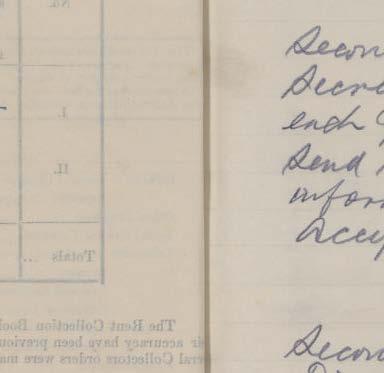 No.
I.
II.
Totals ...
The Rent Collection Book
accuracy have been previous
Collectors orders were ma
Secon
Secre
each
Send
infor
Accep
Secon